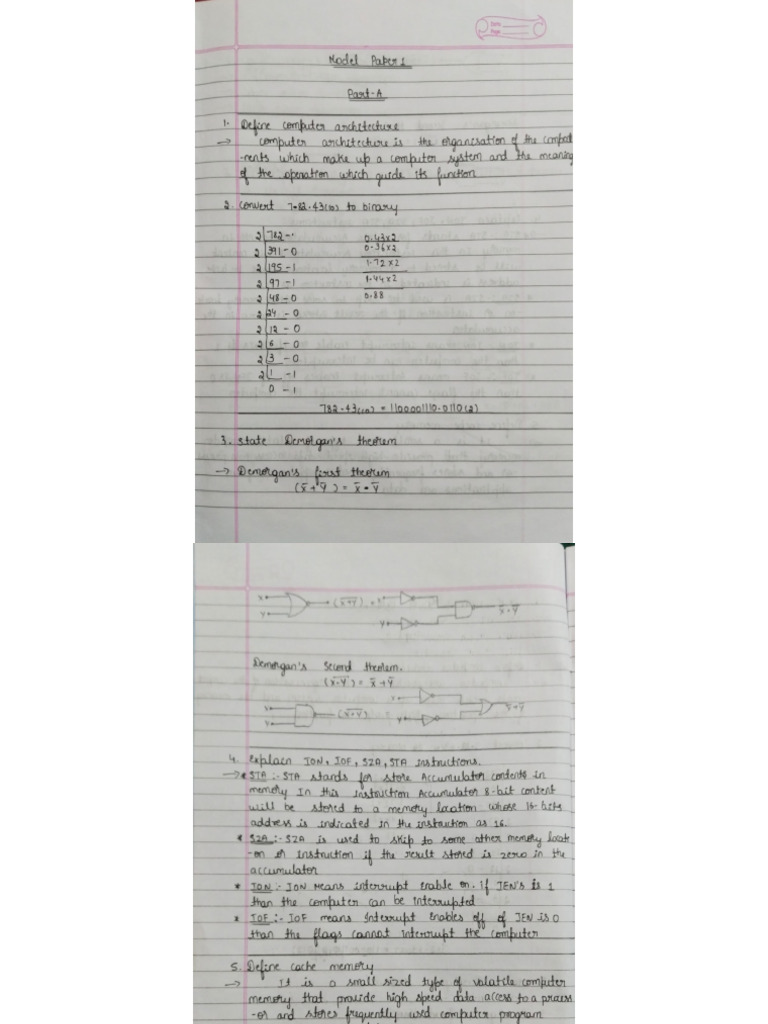 Date
Page
Model Paper 1
Part-A
1. Define computer architecture
→ computer architecture is the organisation of the compot
-nents which make up a computer system and the meaning
of the operation which guide its function
2. convert 7.82.43(10) to binary
2 782 - 
2 391 - 0
2 195 - 1
2 97 - 1
2 48 - 0
2 24 - 0
2 12 - 0
2 6 - 0
2 3 - 0
2 1 - 1
0 - 1
0.43x2
0.36x2
1.72x2
1.44x2
0.88
782.43(10) = 1100001110.0110(2)
3. state Demorgan's theorem
→ Demorgan's first theorem
(x̄+ȳ) = x̄•ȳ
x y (x+y) = x y x̄.ȳ
Demorgan's second theorem.
(x.y) = x̄+ȳ
x y (x.y) = x y x̄+ȳ
4. explain ION, IOF, SZA, STA instructions.
→ • STA :- STA stands for store Accumulator contents in
memory In this instruction Accumulator 8-bit content
will be stored to a memory location whose 16-bits
address is indicated in the instruction as 16.
* SZA :- SZA is used to skip to some other memory locate
-on or instruction if the result stored is zero in the
accumulator
* ION :- ION Means interrupt enable on. If IEN's is 1
than the computer can be interrupted
* IOF :- IOF means Interrupt Enables off of IEN is 0
than the flags cannot interrupt the computer
5. Define cache memory
→ It is a small sized type of volatile computer
memory that provide high speed data access to a process
-or and stores frequently used computer program